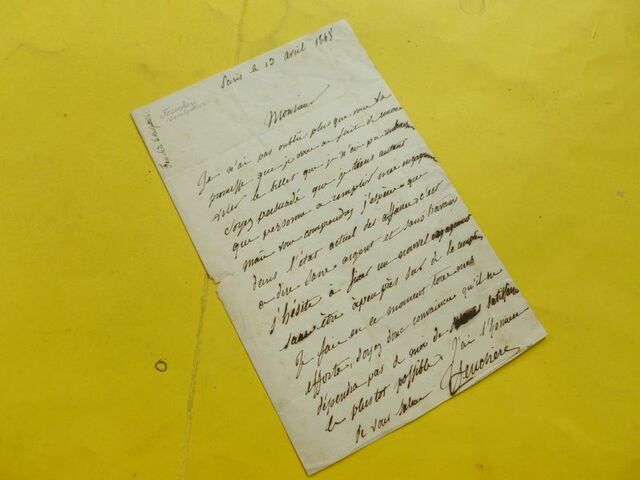 Paris le 13 avril 1848
Feuchère
sculpteur
Monsieur
Je n'ai pas oublié plus que vous la
promesse que je vous ai fait de renou
veler le billet que je n'ai pu
Soyez persuadé que je tiens autant
que personne a remplir mes engage
mais vous comprendrez j'espère que
dans l'état actuel des affaires c'est
a dire sans argent et sans travaux
j'hésite à fixer un nouvel engagement
sans être apeuprès sur de le remplir
Je fais en ce moment tous mes
efforts, soyez donc convaincu qu'il ne
dépendra pas de moi de vous satisfaire
le plustot possible. J'ai l'honneur
de vous saluer
Feuchère